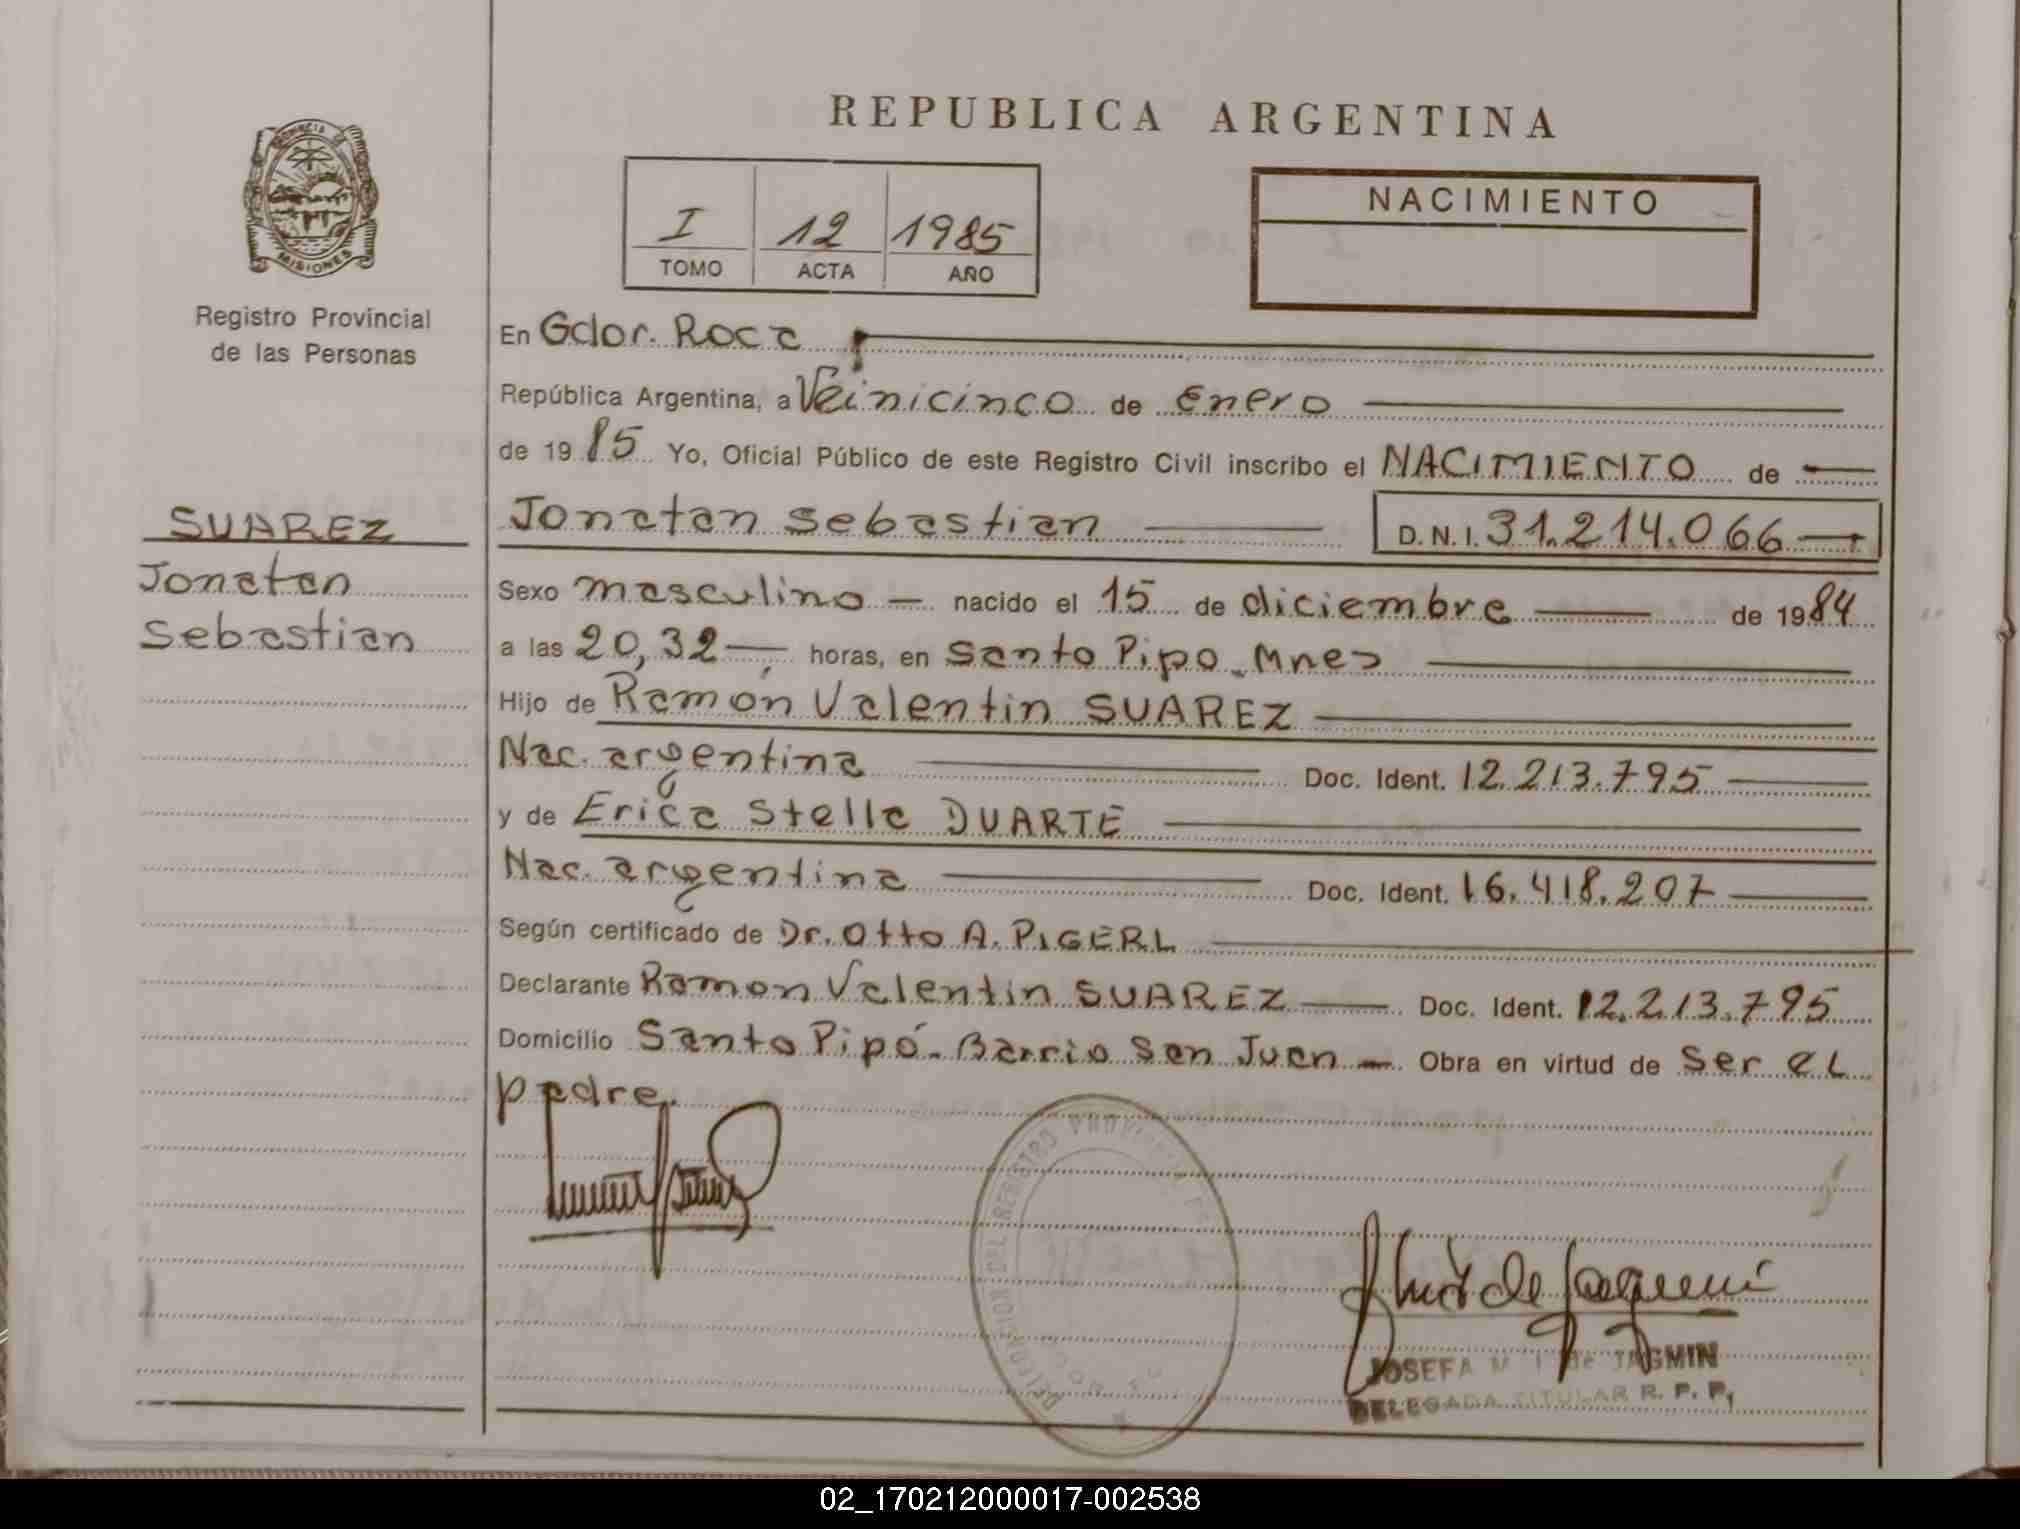 REPUBLICA ARGENTINA
PROVINCIA DE
MISIONES
Registro Provincial
de las Personas
I 12 1985
TOMO ACTA AÑO
NACIMIENTO
En Gdor. Roca
República Argentina, a Veinicinco de Enero
de 1985 Yo, Oficial Público de este Registro Civil inscribo el NACIMIENTO de
SUAREZ
Jonatan
Sebastian
Jonatan Sebastian D.N.I. 31.214.066
Sexo masculino nacido el 15 de diciembre de 1984
a las 20,32 horas, en Santo Pipo Mnes
Hijo de Ramón Valentin SUAREZ
Nac. argentina Doc. Ident. 12.213.795
y de Erica Stella DUARTE
Nac. argentina Doc. Ident. 16.418.207
Según certificado de Dr. Otto A. PIGERL
Declarante Ramon Valentin SUAREZ Doc. Ident. 12.213.795
Domicilio Santo Pipó - Barrio San Juan Obra en virtud de Ser el
padre.
DEL REGISTRO PROVINCIAL
JOSEFA M. de JAGMIN
DELEGADA TITULAR R. P. P.
02_170212000017-002538